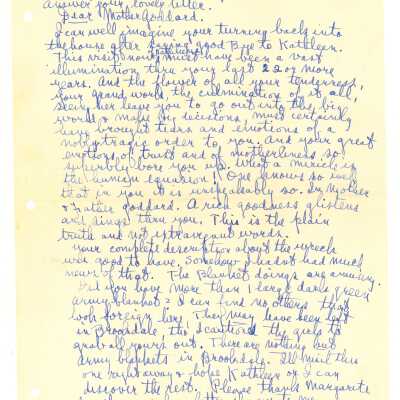 answer your lovely letter.
Dear Mother Goddard.
I can well imagine your turning back into
the house after saying good Bye to Kathleen.
This visit must have been a vast
illumination thru your last 22 or more
years, And the flower of all your tenderness,
your grand work the culmination of it all,
seeing her leave you to go out into the big
world & make big decisions, must certainly
have brought tears and emotions of a
nobly tragic order to you. And your great
emotions of trust and of motherliness so
superbly bore you up. What a miracle is
the human creation! One knows so well
that in you it is unspeakably so. In Mother
& Father Goddard. A rich goodness glistens
and sings thru you. This is the plain
truth and not extravagant words.
Your complete description about the wreck
was good to have. Somehow I hadn't had much
news of that. The Blanket doings are amusing.
Did you have more than 1 large dark green
army blanket? I can find no others that
look foreign here. They may have been left
in Brookdale, tho' I cautioned the girls to
grab all yours out. There are nothing but
army blankets in Brookdale. I'll mail this
one right away & hope Kathleen or I can
discover the rest. Please thank Margarite